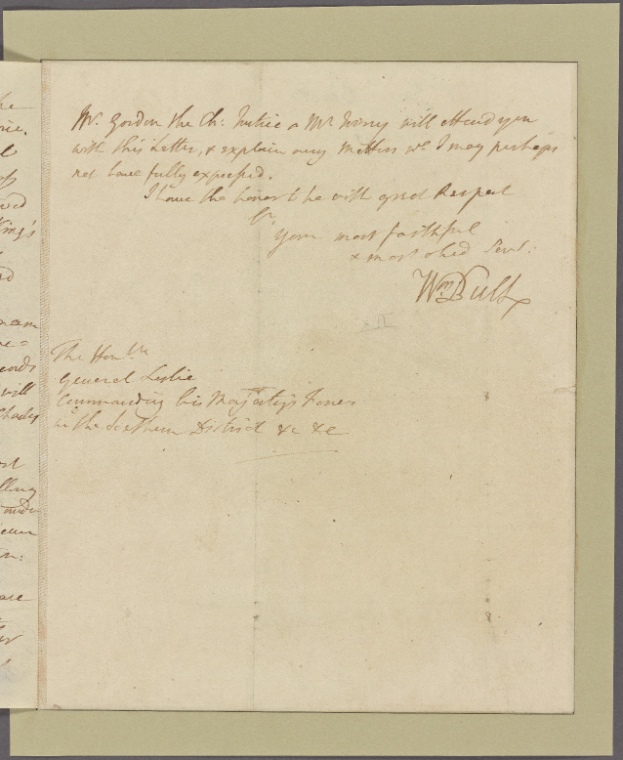 he
rie.
King's
nam
eads
will
Charles
lling
ace
Mr. Gordon the Ch: Justice & Mr. will attend you
with this Letter, & explain any Matters wc. I may perhaps
not have fully expressed.
I have the honor to be with great Respect
Sr.
Your most faithful
& most obed Servt:
Wm. Bull
The Honble
General Leslie
Commanding his Majesty's Forces
in the Southern District &c &c